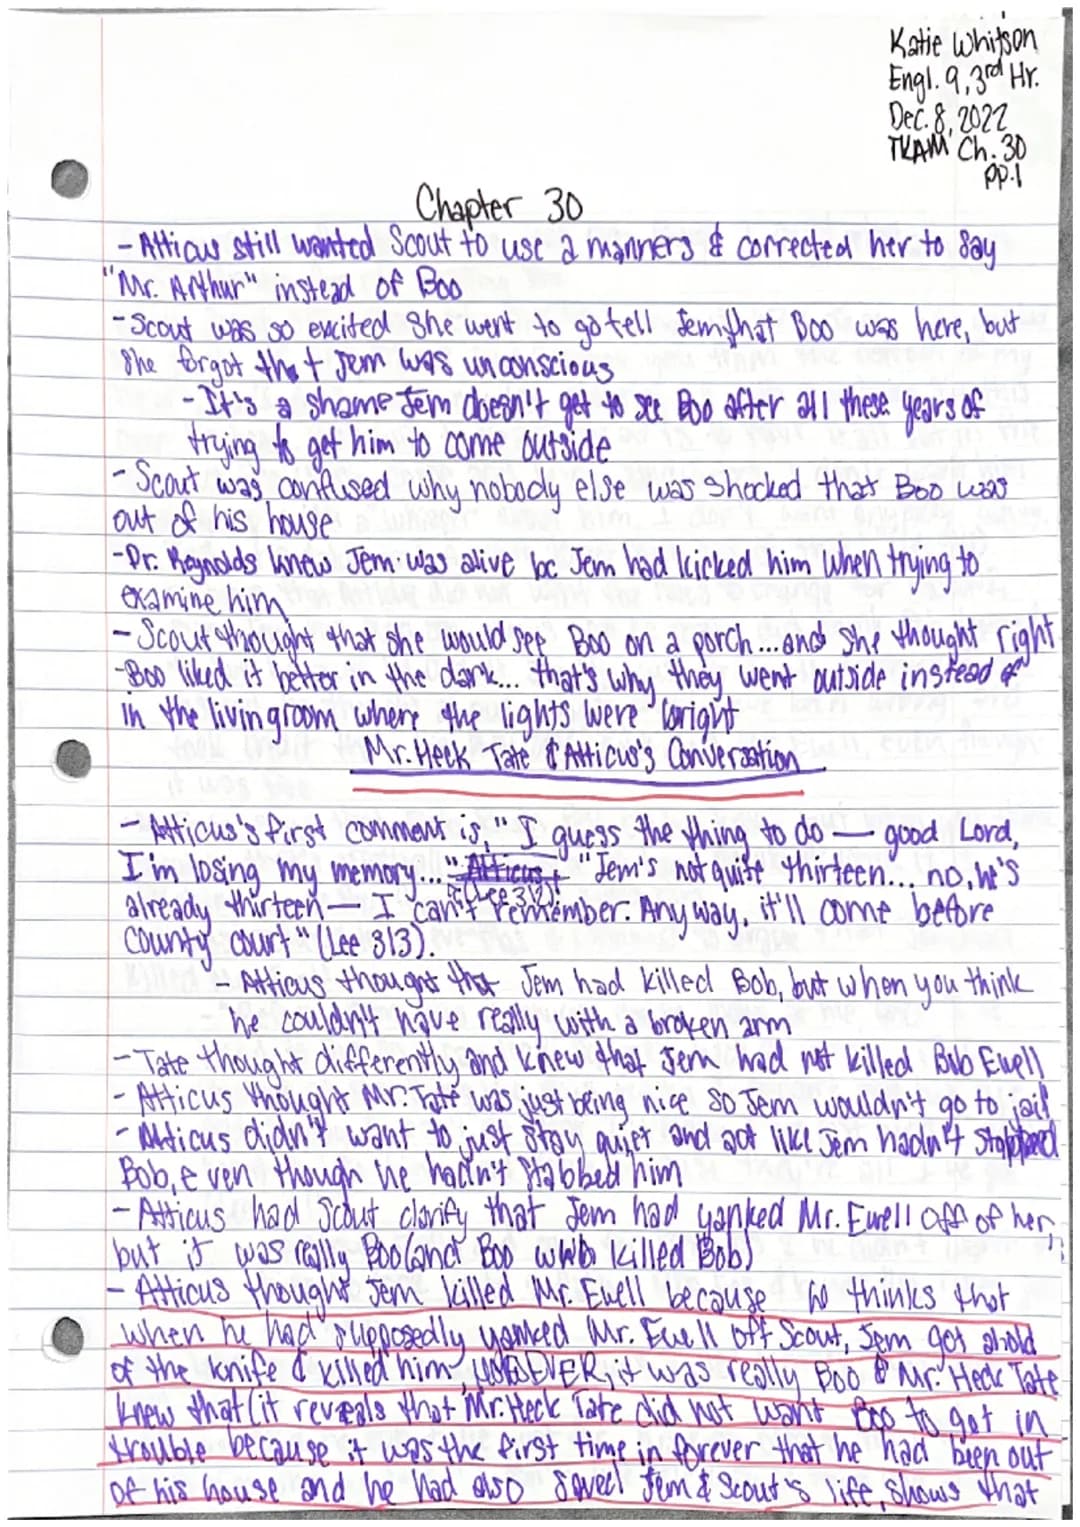 Katie Whitson
Engl. 9, 3rd Hr.
Dec. 8, 2022
TKAM Ch. 30
pp. 1
Chapter 30
- Atticus still wanted Scout to use a manners & corrected her to say
"Mr. Arthur" instead of Boo
- Scout was so excited she went to go tell Jem that Boo was here, but
she forgot that Jem was unconscious
- It's a shame Jem doesn't get to see Boo after all these years of
trying to get him to come outside
- Scout was confused why nobody else was shocked that Boo was
out of his house
- Dr. Reynolds knew Jem was alive bc Jem had kicked him when trying to
examine him
- Scout thought that she would see Boo on a porch... and she thought right
- Boo liked it better in the dark... that's why they went outside instead of
in the livingroom where the lights were bright
Mr. Heck Tate & Atticus's Conversation
- Atticus's first comment is, "I guess the thing to do — good Lord,
I'm losing my memory..." (Lee 312). "Jem's not quite thirteen... no, he's
already thirteen — I can't remember. Anyway, it'll come before
county court" (Lee 313).
- Atticus thought that Jem had killed Bob, but when you think
he couldn't have really with a broken arm
- Tate thought differently and knew that Jem had not killed Bob Ewell
- Atticus thought Mr. Tate was just being nice so Jem wouldn't go to jail
- Atticus didn't want to just stay quiet and act like Jem hadn't stabbed
Bob, even though he hadn't stabbed him
- Atticus had Scout clarify that Jem had yanked Mr. Ewell off of her,
but it was really Boo (and Boo who killed Bob)
- Atticus thought Jem killed Mr. Ewell because he thinks that
when he had supposedly yanked Mr. Ewell off Scout, Jem got ahold
of the knife & killed him, HOWEVER, it was really Boo & Mr. Heck Tate
knew that (it reveals that Mr. Heck Tate did not want Boo to get in
trouble because it was the first time in forever that he had been out
of his house and he had also saved Jem & Scout's life, shows that